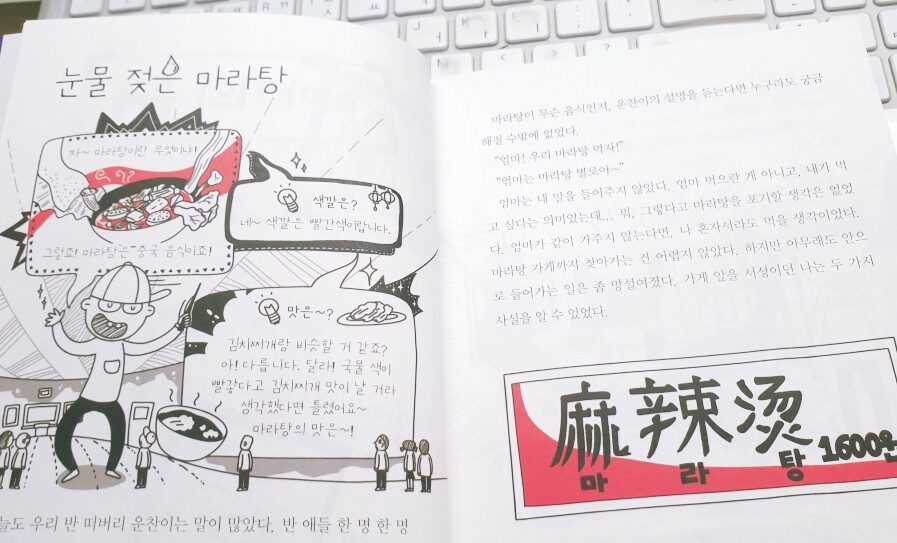 눈물 젖은 마라탕
자~ 마라탕이란 무엇이냐!
그렇죠! 마라탕은 중국 음식이죠!
색깔은?
네~ 색깔은 빨간색이랍니다.
맛은~?
김치찌개랑 비슷할 거 같죠?
아! 다릅니다. 달라! 국물 색이
빨갛다고 김치찌개 맛이 날 거라
생각했다면 틀렸어요~
마라탕의 맛은~!
늘도 우리 반 떠버리 운찬이는 말이 많았다. 반 애들 한 명 한 명
마라탕이 무슨 음식인지, 운찬이의 설명을 듣는다면 누구라도 궁금
해질 수밖에 없었다.
"엄마! 우리 마라탕 먹자!"
"엄마는 마라탕 별로야~"
엄마는 내 말을 들어주지 않았다. 엄마 먹으란 게 아니고, 내가 먹
고 싶다는 의미였는데... 뭐, 그렇다고 마라탕을 포기할 생각은 없었
다. 엄마가 같이 가주지 않는다면, 나 혼자서라도 먹을 생각이었다.
마라탕 가게까지 찾아가는 건 어렵지 않았다. 하지만 아무래도 안으
로 들어가는 일은 좀 망설여졌다. 가게 앞을 서성이던 나는 두 가지
사실을 알 수 있었다.
麻辣烫 1600원
마 라 탕